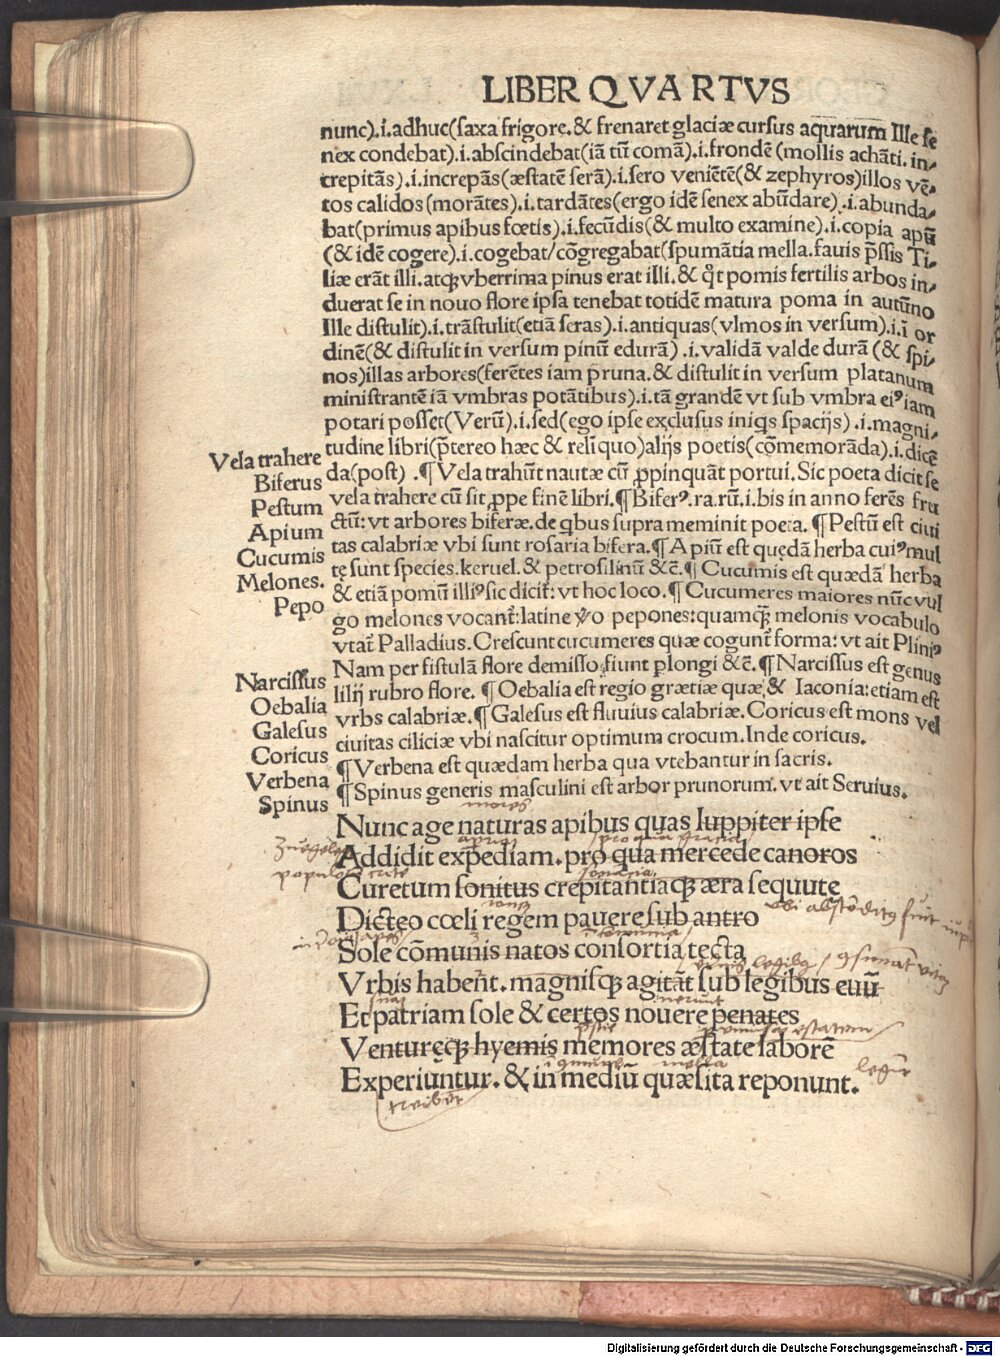 LIBER QVARTVS
nunc).i.adhuc(saxa frigore.& frenaret glaciæ cursus aquarum Ille se
nex condebat).i.abscindebat(iā tū comā).i.frondē (mollis achāti.in-
crepitās).i.increpās(æstatē serā).i.sero veniētē(& zephyros)illos vē-
tos calidos(morātes).i.tardātes(ergo idē senex abūdare).i.abunda-
bat(primus apibus fœtis).i.fecūdis(& multo examine).i.copia apū
(& idē cogere).i.cogebat/cōgregabat(spumātia mella.fauis p̄ssis Ti-
liæ erāt illi.atqꝫ vberrima pinus erat illi.& qͦt pomis fertilis arbos in-
duerat se in nouo flore ipsa tenebat totidē matura poma in autūno
Ille distulit).i.trāstulit(etiā seras).i.antiquas(vlmos in versum).i.ī or
dinē(& distulit in versum pinū edurā).i.validā valde durā (& spi-
nos)illas arbores(ferētes iam pruna.& distulit in versum platanum
ministrantē iā vmbras potātibus).i.tā grandē vt sub vmbra eiꝰ iam
potari posset(Verū).i.sed(ego ipse exclusus iniqs spacijs).i.magni-
tudine libri(p̄tereo hæc & reliquo)alijs poetis(cōmemorāda).i.dicē
da(post) .¶Vela trahūt nautæ cū ꝓpinquāt portui.Sic poeta dicit se
vela trahere cū sit ꝓpe finē libri.¶Biferꝰ.ra.rū.i.bis in anno ferēs fru
ctū:vt arbores biferæ.de qbus supra meminit poeta. ¶Pestū est ciui
tas calabriæ vbi sunt rosaria bifera.¶Apiū est quędā herba cuiꝰ mul
tę sunt species.keruel.& petrosilinū &c̄.¶Cucumis est quædā herba
& etiā pomū illiꝰ sic dicit̄:vt hoc loco.¶Cucumeres maiores nūc vul
go melones vocant̄:latine v̊o pepones:quamqꝫ melonis vocabulo
vtat̄ Palladius.Crescunt cucumeres quæ cogunt̄ forma:vt ait Pliniꝰ
Nam per fistulā flore demisso fiunt plongi &c̄.¶Narcissus est genus
lilij rubro flore. ¶Oebalia est regio grætiæ quæ & laconia:etiam est
vrbs calabriæ.¶Galesus est fluuius calabriæ.Coricus est mons vel
ciuitas ciliciæ vbi nascitur optimum crocum.Inde coricus.
¶Verbena est quædam herba qua vtebantur in sacris.
¶Spinus generis masculini est arbor prunorum.vt ait Seruius.
Vela trahere
Biferus
Pestum
Apium
Cucumis
Melones.
Pepo
Narcissus
Oebalia
Galesus
Coricus
Verbena
Spinus
mores
Nunc age naturas apibus quas Iuppiter ipse
Addidit expediam.pro qua mercede canoros
Curetum sonitus crepitantiaqꝫ æra sequute
Dicteo cœli regem pauere sub antro
Sole cōmunis natos consortia tecta
Vrbis habent̄.magnisqꝫ agitāt sub legibus euū
Et patriam sole & certos nouere penates
Venturęqꝫ hyemis memores æstate laborē
mella
Experiūntur.& in mediū quæsita reponunt.
Digitalisierung gefördert durch die Deutsche Forschungsgemeinschaft - DFG